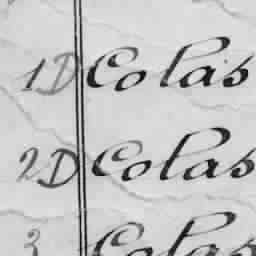 1D Colas
2D Colas
3 Colas